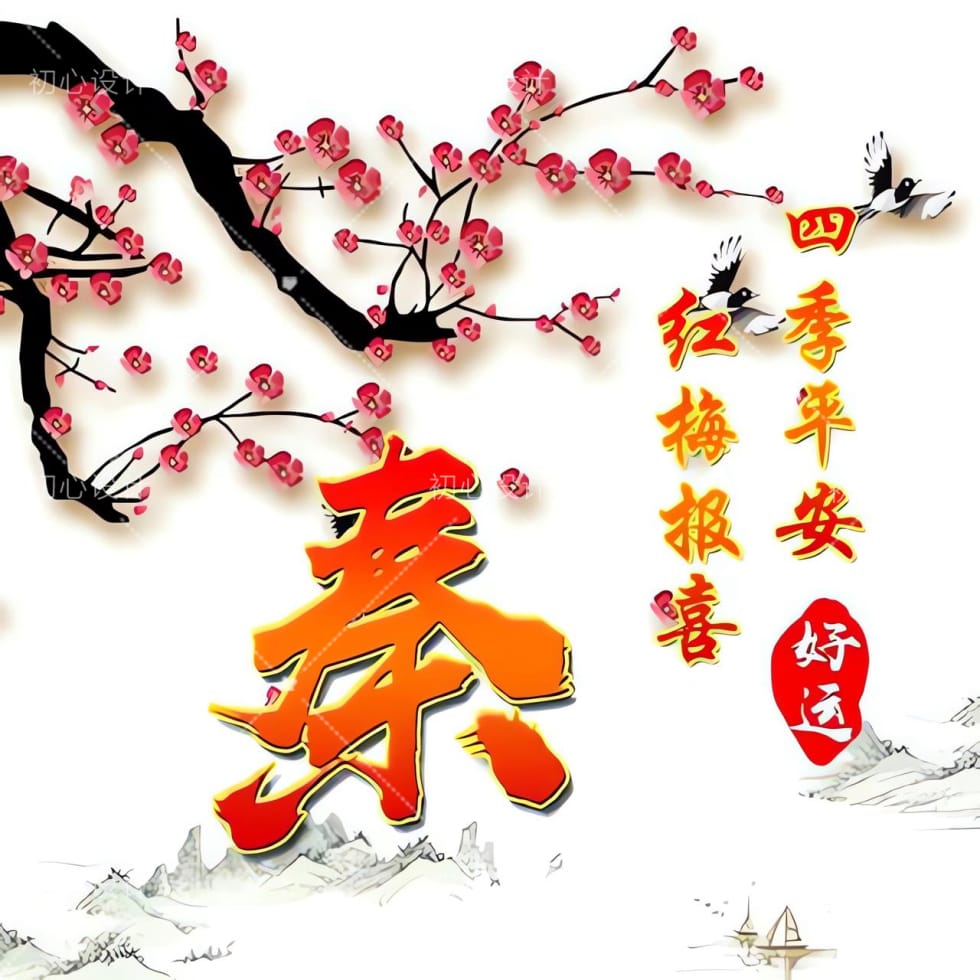 四季平安
红梅报喜
好运
秦
初心设计
初心设计
初心设计
初心设计